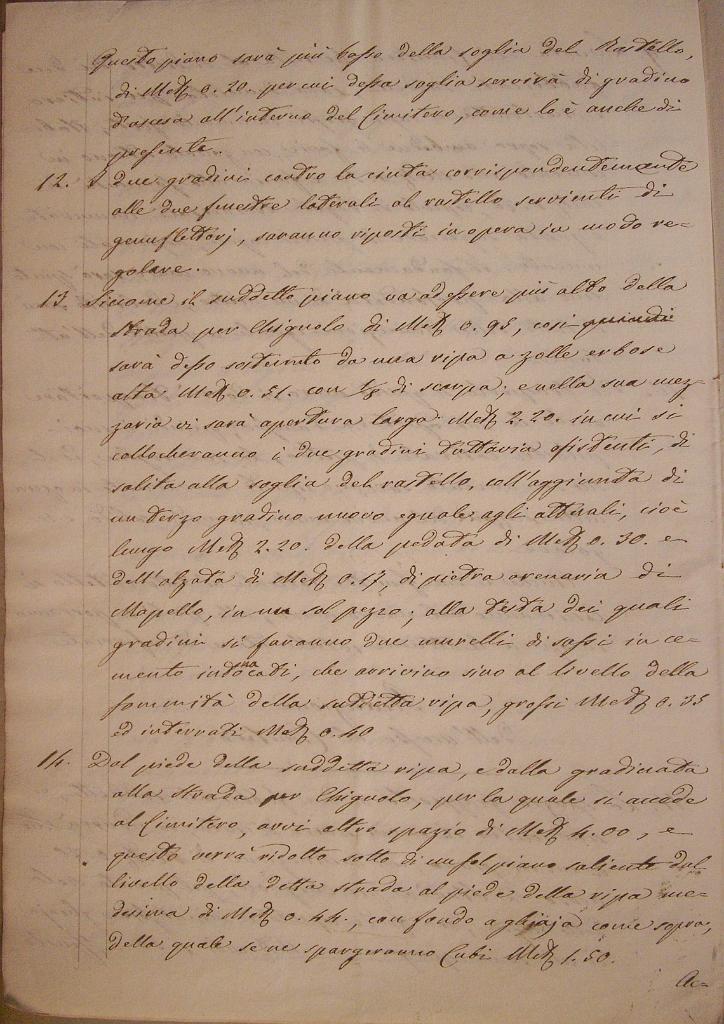 Questo piano sarà più basso della soglia del Rastello,
di Met. 0.20. per cui dessa soglia servirà di gradino
d'ascesa all'interno del Cimitero, come lo è anche di
presente.
12. I due gradini contro la cinta corrispondentemente
alle due finestre laterali al rastello servienti di
genuflettorj, saranno riposti in opera in modo re-
golare.
13 Siccome il suddetto piano va ad essere più alto della
strada per Chignolo di Met. 0.95, così quindi
sarà desso sostenuto da una ripa a zolle erbose
alta Met. 0.51. con 1/3 di scarpa; e nella sua mez-
zaria vi sarà apertura larga Met. 2.20. in cui si
collocheranno i due gradini tuttavia esistenti, di
salita alla soglia del rastello, coll'aggiunta di
un terzo gradino nuovo eguale agli attuali, cioè
lungo Met. 2.20. della pedata di Met. 0.30. e
dell'alzata di Met. 0.17, di pietra arenaria di
Mapello, in un sol pezzo; alla testa dei quali
gradini si faranno due murelli di sassi in ce-
mento intonacati, che arrivino sino al livello della
sommità della suddetta ripa, grossi Met. 0.35
ed interrati Met. 0.40
14. Dal piede della suddetta ripa, e dalla gradinata
alla strada per Chignolo, per la quale si accede
al Cimitero, avvi altro spazio di Met. 4.00, e
questo verrà ridotto sotto di un sol piano saliente dal
livello della detta strada al piede della ripa me-
desima di Met. 0.44., con fondo a ghiaja come sopra,
della quale se ne spargeranno Cubi Met. 1.50.
Ac-